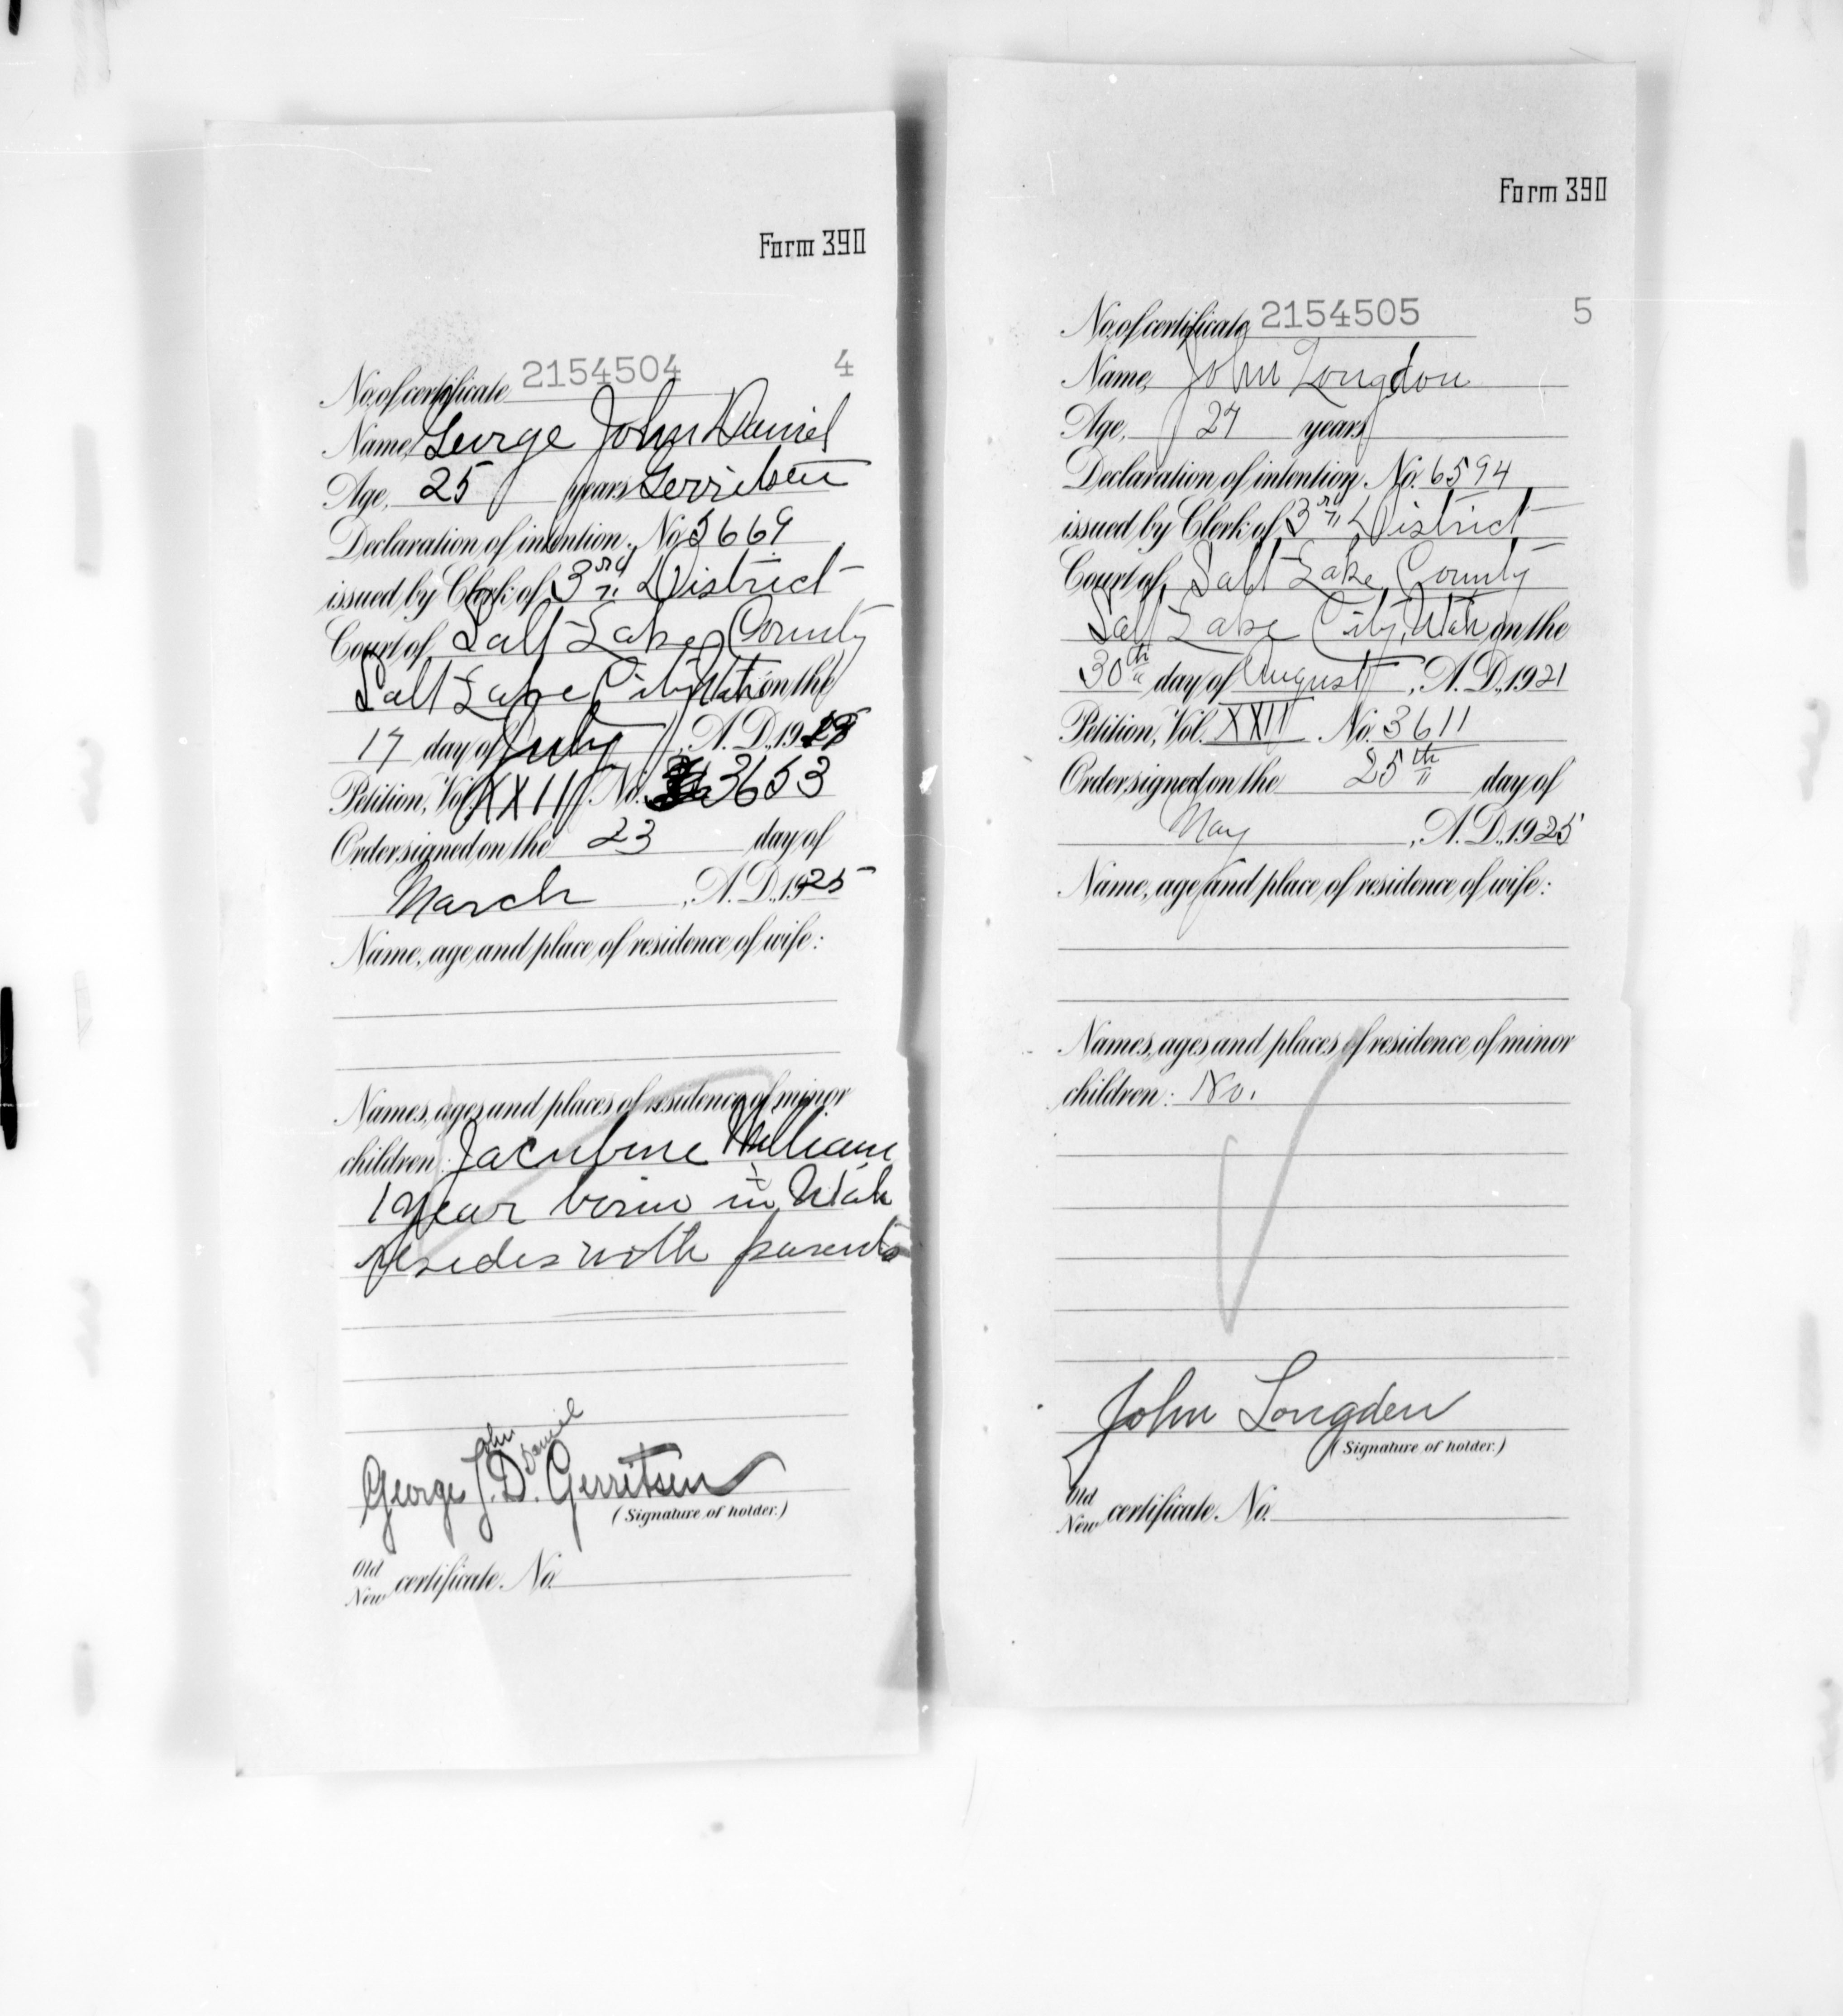 Form 390
No. of certificate 2154504 4
Name, George John Daniel
Age, 25 years Gerritsen
Declaration of intention, No. 5669
issued by Clerk of 3rd District
Court of Salt Lake County
Salt Lake City Utah on the
17 day of July, A.D., 19
Petition, Vol. XXII No. 3653
Order signed on the 23 day of
March, A.D., 1925
Name, age, and place of residence of wife:
Names, ages and places of residence of minor
children: William
1 year born in Utah
resides with parents
George J. D. Gerritsen
John Daniel
(Signature of holder.)
Old
New certificate No.
Form 390
No. of certificate 2154505 5
Name, John Longdon
Age, 27 years
Declaration of intention, No. 6594
issued by Clerk of 3rd District
Court of Salt Lake County
Salt Lake City, Utah on the
30th day of August, A.D., 1921
Petition, Vol. XXII No. 3611
Order signed on the 25th day of
May, A.D., 1925
Name, age, and place of residence of wife:
Names, ages and places of residence of minor
children: No.
John Longden
(Signature of holder.)
Old
New certificate No.